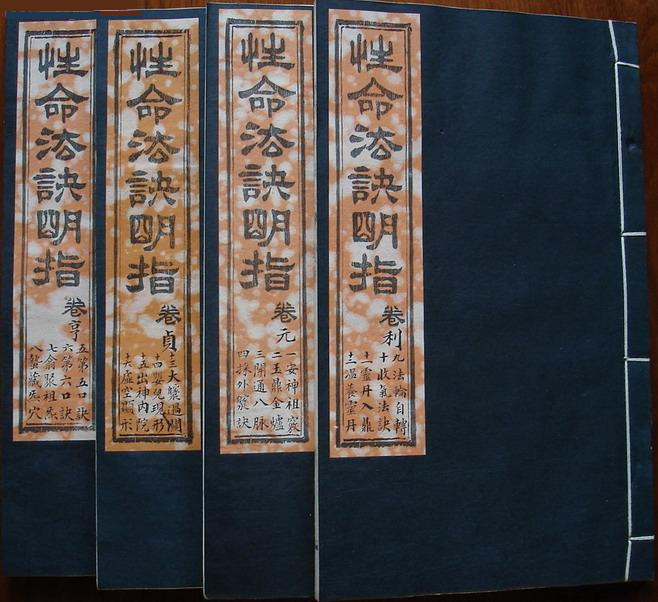 性命法訣明指
卷利
九法輪自轉
十收氣法訣
十一靈丹入鼎
十二溫養靈丹
性命法訣明指
卷元
一安神祖竅
二玉鼎金爐
三開通八脉
四採外藥訣
性命法訣明指
卷貞
十三大藥過關
十四嬰兒現形
十五出神內院
十六虛空顯形
性命法訣明指
卷亨
五第五口訣
六第六口訣
七翕聚祖炁
八蟄藏炁穴